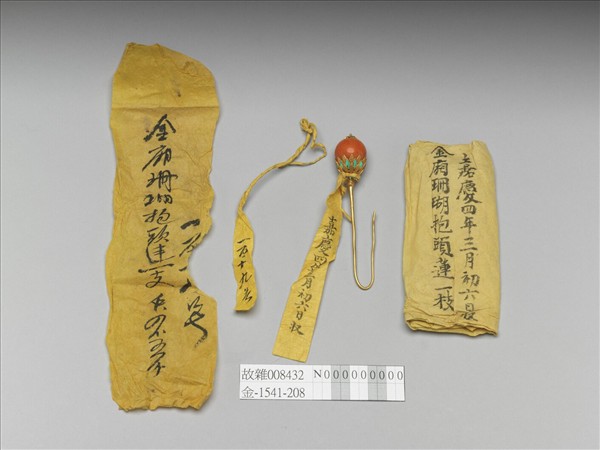 金廂珊瑚抱頭蓮一支
一百十九号
嘉慶四年三月初六日收
嘉慶四年三月初六日收
金廂珊瑚抱頭蓮一枝
故雜008432 N000000000
金-1541-208